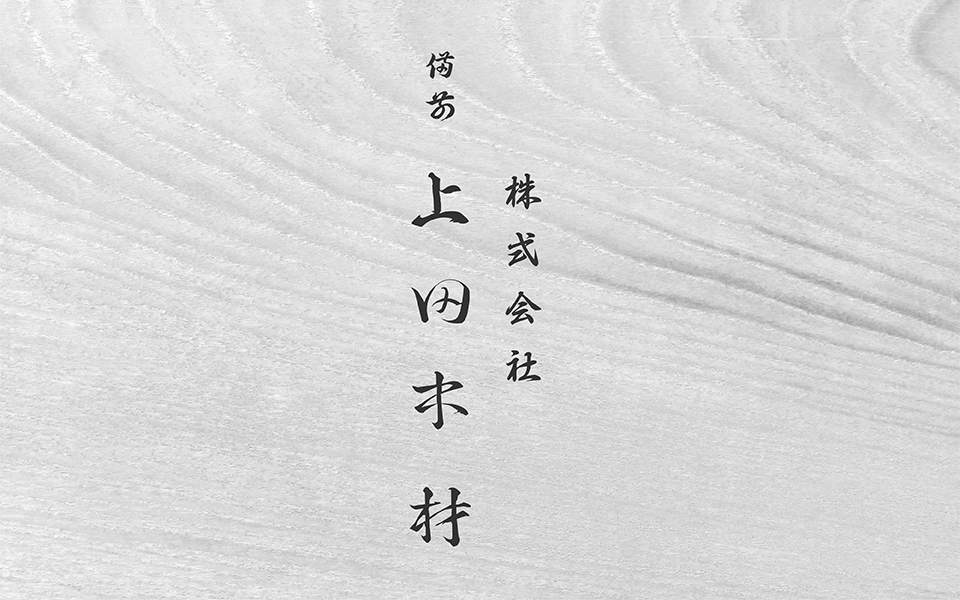 株式会社
備前
上田木材